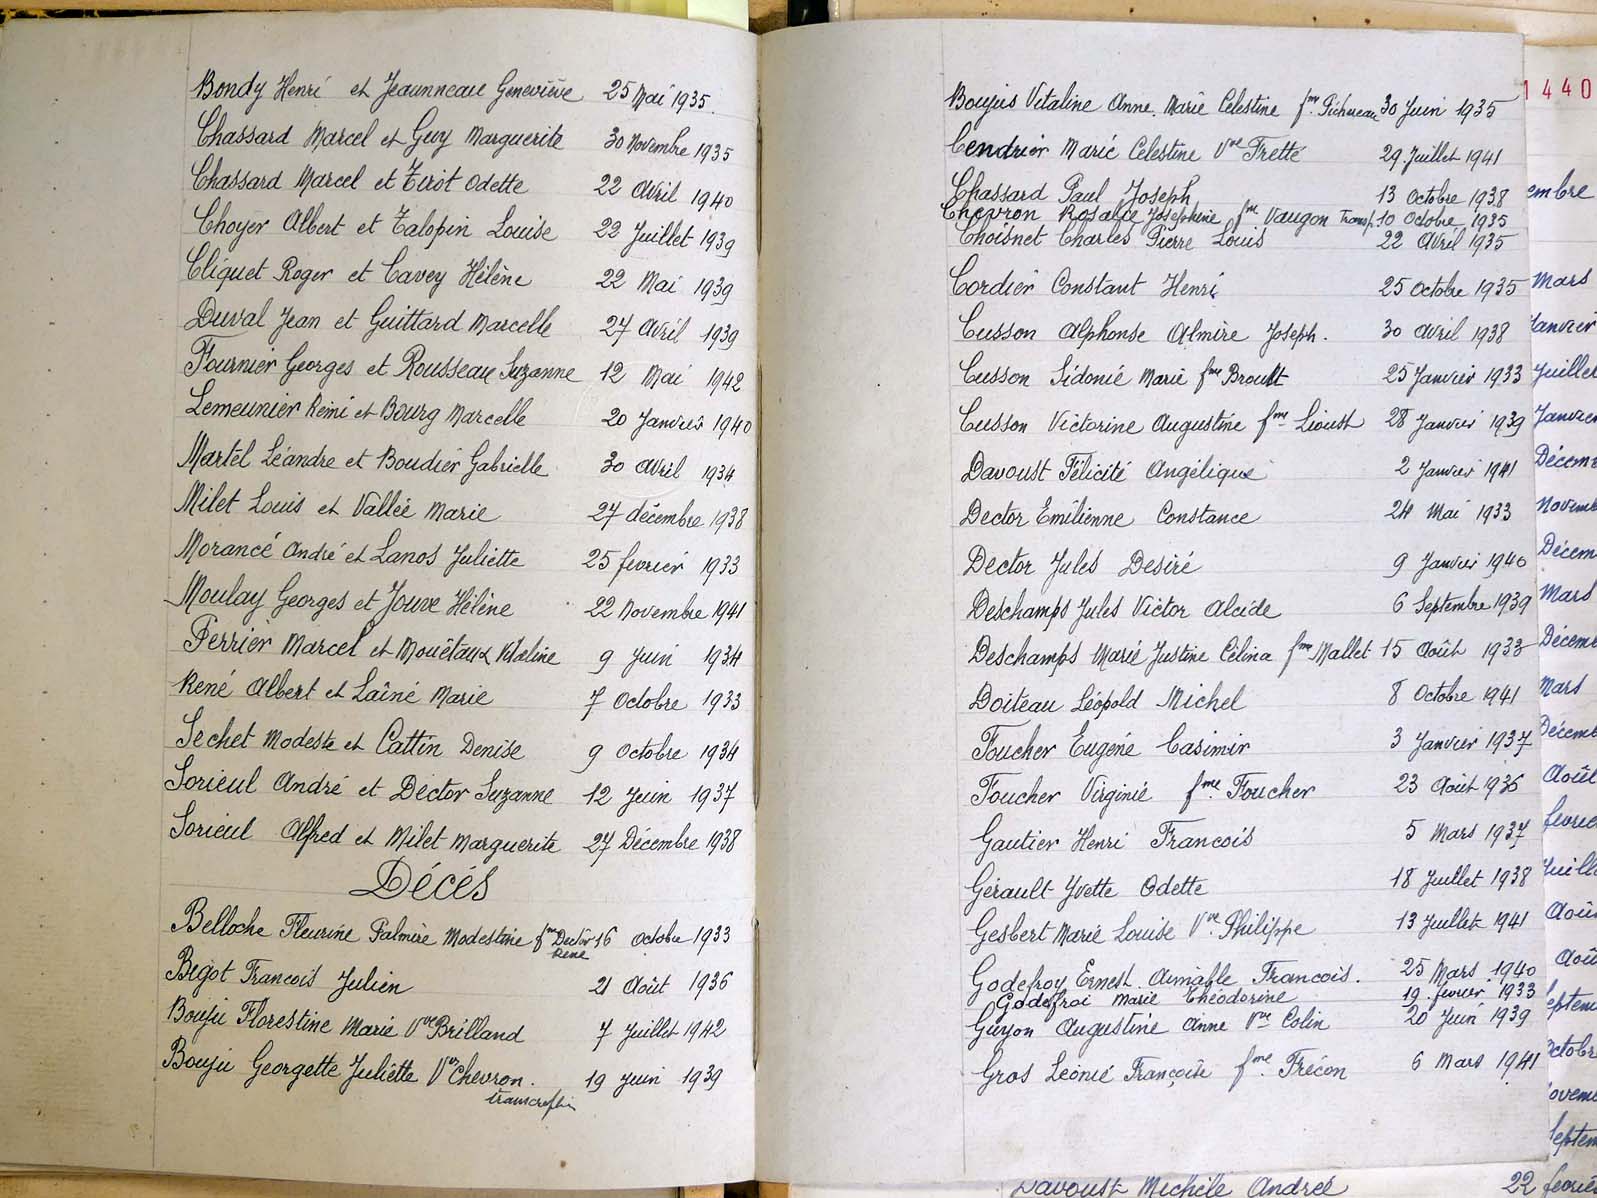 Bondy Henri et Jeanneau Geneviève 25 Mai 1935.
Chassard Marcel et Guy Marguerite 30 Novembre 1935
Chassard Marcel et Tirot Odette 22 Avril 1940
Choyer Albert et Talopin Louise 22 Juillet 1939
Cliquet Roger et Cavey Hélène 22 Mai 1939
Duval Jean et Guittard Marcelle 27 Avril 1939
Fournier Georges et Rousseau Suzanne 12 Mai 1942
Lemeunier Rémi et Bourg Marcelle 20 Janvier 1940
Martel Léandre et Boudier Gabrielle 30 avril 1934
Milet Louis et Vallée Marie 27 décembre 1938
Morancé André et Lanos Juliette 25 fevrier 1933
Moulay Georges et Jouve Hélène 22 Novembre 1941
Perrier Marcel et Mouëtaux Vitaline 9 Juin 1934
René Albert et Laîné Marie 7 Octobre 1933
Sechet Modeste et Cattin Denise 9 Octobre 1934
Sorieul André et Dector Suzanne 12 Juin 1937
Sorieul Alfred et Milet Marguerite 27 Décembre 1938
Décés
Belloche Fleurine Palmire Modestine fme Dector 16 octobre 1933
René
Bigot Francois Julien 21 Août 1936
Bouju Florestine Marie Vve Brilland 7 Juillet 1942
Bouju Georgette Juliette Vve Chevron. 19 Juin 1939
transcription
Boujus Vitaline Anne. Marie Celestine fme. Pichereau 30 Juin 1935
Cendrier Marie Celestine Vve Frette 29 Juillet 1941
Chassard Paul Joseph 13 Octobre 1938
Chevron Rosalie Josephine fme Vaugon Transp. 10 Octobre 1935
Choisnet Charles Pierre Louis 22 Avril 1935
Cordier Constant Henri 25 Octobre 1935
Cusson Alphonse Almire Joseph. 30 avril 1938
Cusson Sidonie Marie fme Broult 25 Janvier 1933
Cusson Victorine Augustine fme Lioust 28 Janvier 1939
Davoust Félicité Angélique 2 Janvier 1941
Dector Emilienne Constance 24 Mai 1933
Dector Jules Desiré 9 Janvier 1940
Deschamps Jules Victor Alcide 6 Septembre 1939
Deschamps Marie Justine Célina fme Mallet 15 Août 1933
Doiteau Léopold Michel 8 Octobre 1941
Foucher Eugéne Casimir 3 Janvier 1937
Foucher Virginie fme. Foucher 23 Août 1936
Gautier Henri Francois 5 Mars 1937
Gérault Yvette Odette 18 Juillet 1938
Gesbert Marie Louise Vve. Philippe 13 Juillet 1941
Godefroy Ernest. Aimable Francois. 25 Mars 1940
Godefroi Marie Theodorine 19. fevrier 1933
Guyon Augustine Anne Vve Colin 20 Juin 1939
Gros Léonie Françoise fme. Frécon 6 Mars 1941
1440
embre
Mars
Janvier
Juillet
Janvier
Décem
Novemb
Décem
Mars
Décemb
Mars
Décemb
Août
fevrie
Juille
Aoû
Aoû
Septem
Octobr
Novem
Septem
Davoust Michéle Andrée 22 fevrie